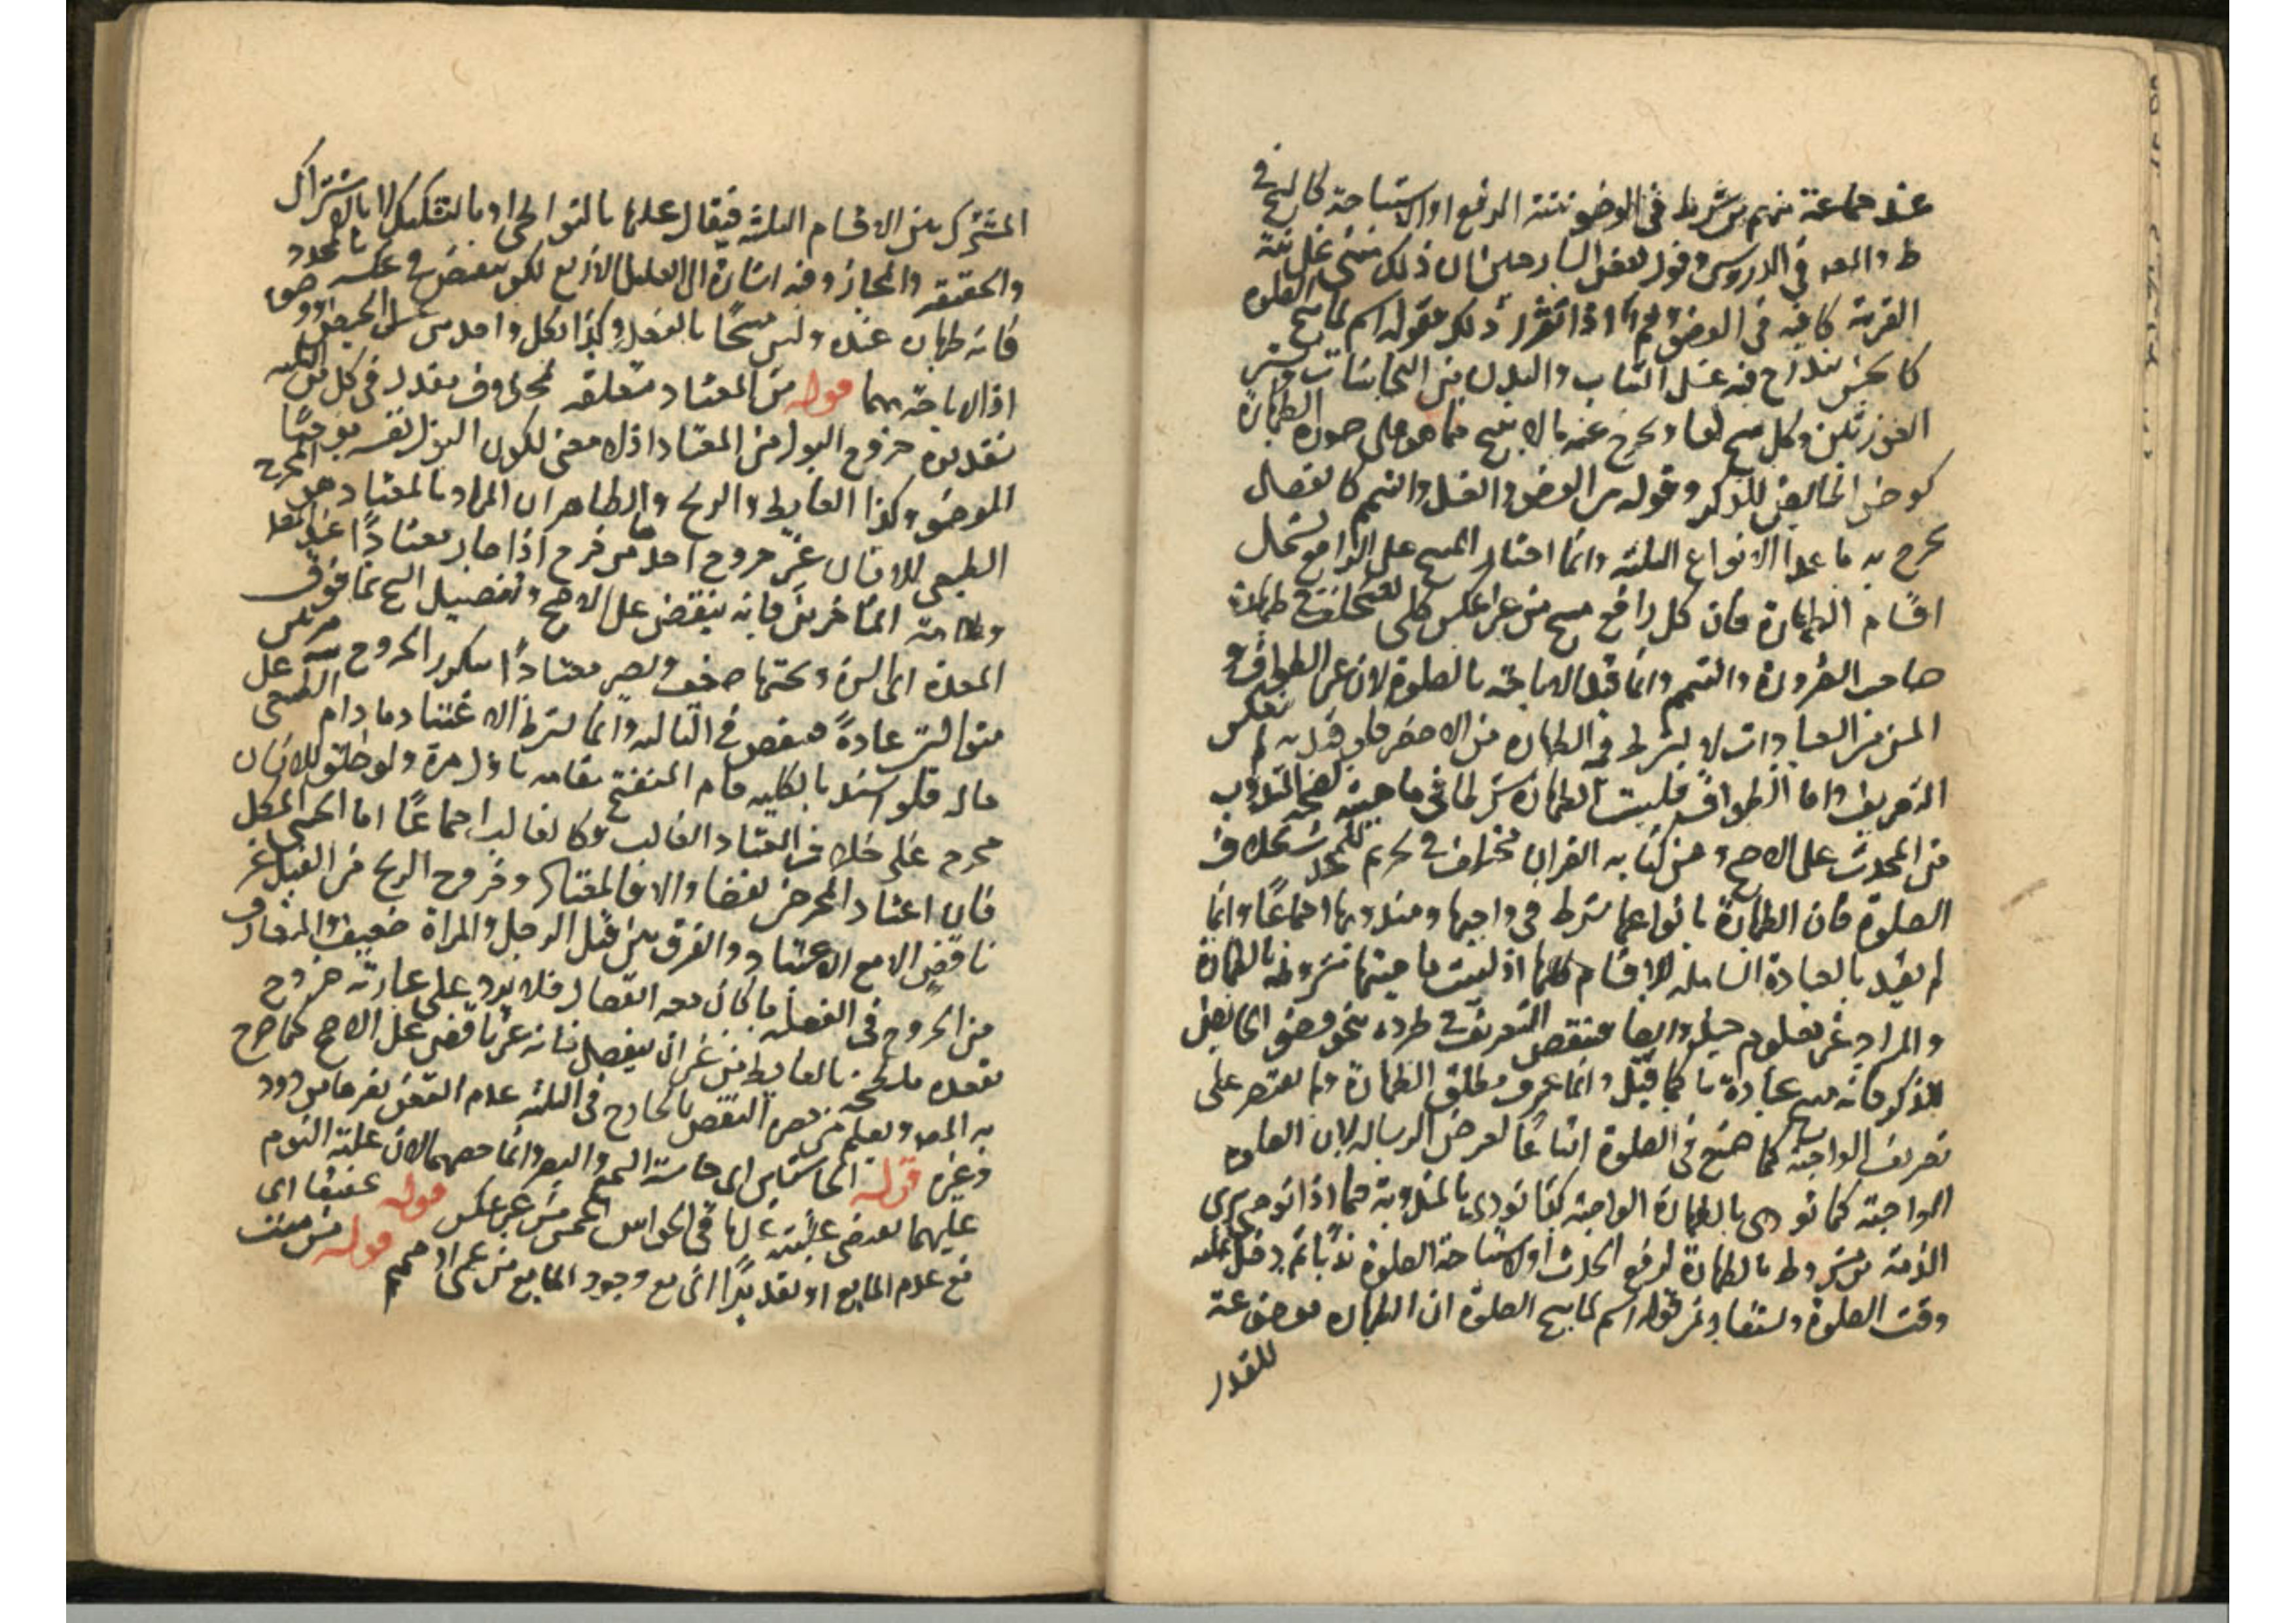 عند جماعة منهم من شرط في الوضو نية الرفع او الاستباحة كالشيخ في
ط والمص في الدروس وقول بعض الشارحين ان ذلك مبنى على نية
القربة كافيه في الوضو اذا تقرر ذلك فقوله اسم لما يبيح الصلوة
كالجنس يندرج فيه غسل الثياب والبدن من النجاسات وستر
العورتين وكل مبيح لها ويخرج عنه ما لا يبيح مما هو على صورة الطهارة
كوضو الحائض للذكر وقوله من الوضو والغسل والتيمم كالفصل
يخرج به ما عدا الانواع الثلثة وانما اختار المبيح على الرافع ليشمل
اقسام الطهارة فان كل رافع مبيح من غير عكس كلي لتخلف في طهارة
صاحب الضرورة والتيمم وانما قيد الاباحة بالصلوة لان غير الطواف و
المس من العبادات لا يشترط فيه الطهارة من الاصغر فلو قيد به لم ينعكس
التعريف واما الطواف فليست الطهارة شرطا في ماهيته لصحة المندوب
من المحدث على الاصح ومس كتابه القران مختلف في تحريم للمحدث بخلاف
الصلوة فان الطهارة بانواعها شرط في واجبها ومندوبها اجماعًا وانما
لم يقيد بالعبادة الشاملة لاقسام كلها اذ ليست ماهيتها مشروطه بالطهارة
والمراد غير معلوم حينئذ وايضا فينتقض التعريف في طرده بنحو وضو الحائض
للذكر فانه مبيح عبادة ما كما قيل وانما عرف مطلق الطهارة ولم يقتصر على
تعريف الواجبة كما صنع في الصلوة اتباعًا لغرض الرسالة لان الصلوة
الواجبة كما تودى بالطهارة الواجبة كذا تودى بالمندوبة كما اذا توضى برى
الذمة من مشروط بالطهارة لرفع الحدث او لاستباحة الصلوة ندبًا ثم دخل عليه
وقت الصلوة ويستفاد من قوله اسم لما يبيح الصلوة ان الطهارة موضوعة
للقدر
المشترك بين الاقسام الثلثة فيقال عليها بالتواطى او بالتشكيك لا بالاشتراك
والحقيقه والمجاز وفيه اشارة الى العلل الاربع لكن ينتقض في عكسه بالمجدد
فانه طهارة عنده وليس مبيحًا بالفعل وكذا لكل واحد من غسل الحيض
اذ لا اباحة بهما قوله من المعتاد متعلقه محذوف مقدر في كل من الثلثه
تقديره خروج البول من المعتاد اذ لا معنى لكون البول نفسه موجبًا
للوضو وكذا الغايط والريح والظاهر ان المراد بالمعتاد هو المخرج
الطبيعى للانسان غير خروج احد من فرج اذا صار معتادًا عند المص
وعلامة المتاخرين فانه ينقض على الاصح وتفصيل الشيخ بما فوق
المعدة اى السرة وتحتها ضعيف ويصير معتادًا بتكرر الخروج منه مرتين
متواليتين عادةً فينقض في الثالثه وانما يشترط الاعتياد ما دام الطبيعى على
حاله فلو انسد بالكليه قام المنفتح مقامه باول مرة ولو خلق للانسان
مخرج على خلاف المعتاد الغالب فكالغالب اجماعًا اما الخنثى المشكل
فان اعتاد المخرجين نقضا والا فالمعتاد وخروج الريح من القبل غير
ناقض الا مع الاعتياد والفرق بين قبل الرجل والمراة ضعيف والمتعارف
من الخروج في الفضلة ما كان معه انفصال فلا يرد على عبارته خروج
مقعده ملطخة بالغايط من غير ان ينفصل فانه غير ناقض على الاصح كما صرح
به المص ويعلم من حصر النقض بالخارج في الثلثه عدم النقض بغيرها من دود
وغيره قوله الحاستين اى حاسة السمع والبصر وانما خصهما لان غلبة النوم
عليهما يقتضى غلبته عليها في الحواس الخمس من غير عكس قوله تحقيقا اى
مع عدم المانع او تقديرًا اى مع وجود المانع من عمى او صمم قوله من ميت